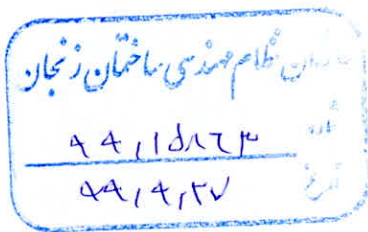 سازمان نظام مهندسی ساختمان زنجان
شماره ۹۹,۱۵۸۶۳
تاریخ ۹۹,۹,۲۷